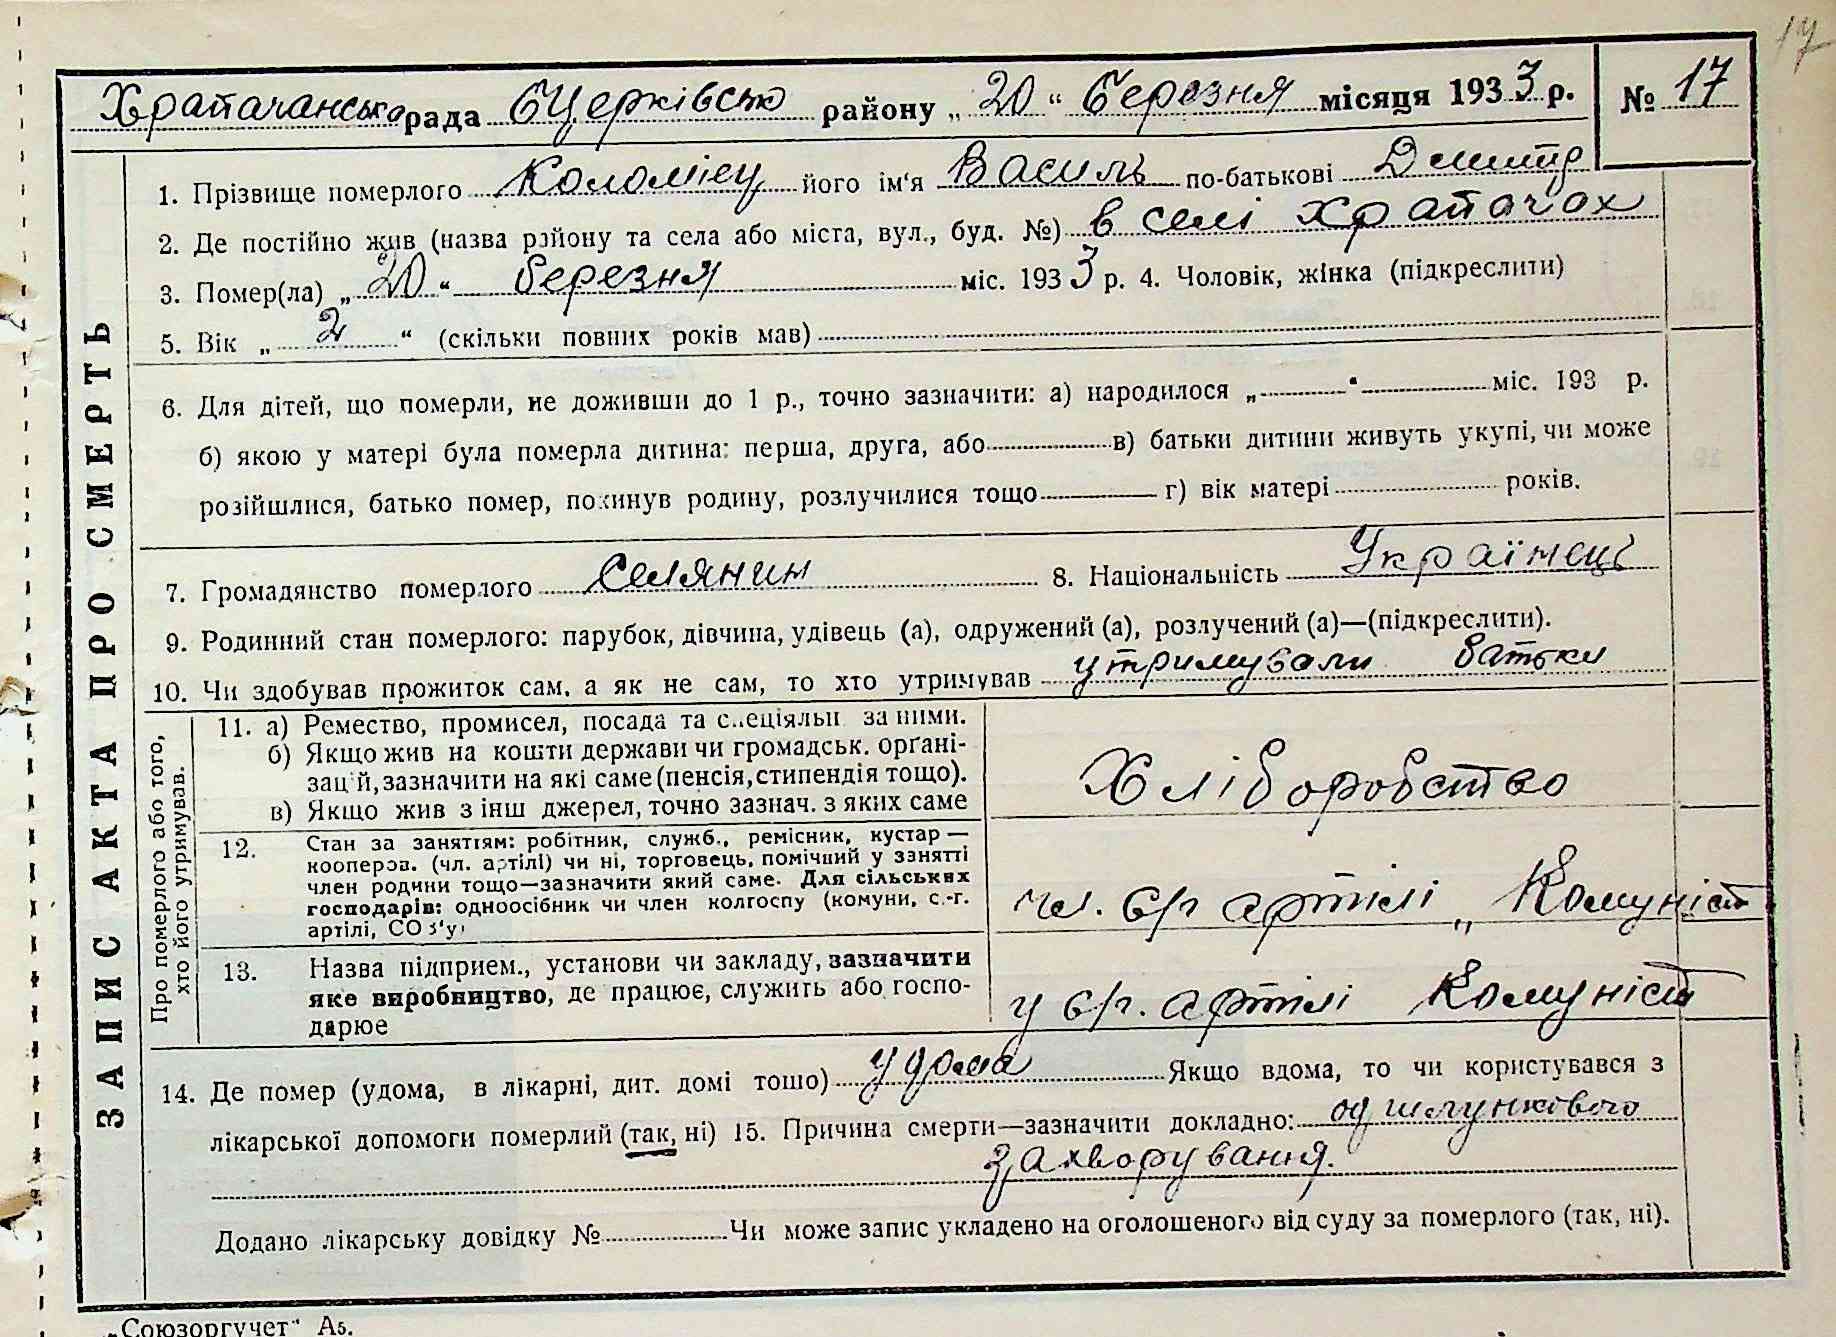 17
Храпачанська рада БЦерківсько району „ 20 “ Березня місяця 1933 р. № 17
ЗАПИС АКТА ПРО СМЕРТЬ
1. Прізвище померлого Коломієц його ім‘я Василь по-батькові Дмитр
2. Де постійно жив (назва району та села або міста, вул., буд. №) в селі Храпачах
3. Помер(ла) „ 20 “ березня міс. 1933 р. 4. Чоловік, жінка (підкреслити)
5. Вік „ 2 “ (скільки повних років мав)
6. Для дітей, що померли, не доживши до 1 р., точно зазначити: а) народилося „ “ міс. 193 р.
б) якою у матері була померла дитина: перша, друга, або в) батьки дитини живуть укупі, чи може
розійшлися, батько помер, покинув родину, розлучилися тощо г) вік матері років.
7. Громадянство померлого селянин 8. Національність Українець
9. Родинний стан померлого: парубок, дівчина, удівець (а), одружений (а), розлучений (а)—(підкреслити).
10. Чи здобував прожиток сам, а як не сам, то хто утримував утримували батьки
Про померлого або того, хто його утримував.
11. а) Ремество, промисел, посада та спеціяльн за ними.
б) Якщо жив на кошти держави чи громадськ. орґані-
зацій, зазначити на які саме (пенсія, стипендія тощо).
в) Якщо жив з інш джерел, точно зазнач. з яких саме
Хліборобство
12. Стан за заняттям: робітник, служб., ремісник, кустар —
кооперов. (чл. артілі) чи ні, торговець, помічний у занятті
член родини тощо—зазначити який саме. Для сільських
господарів: одноосібник чи член колгоспу (комуни, с.-г.
артілі, СОЗ‘у)
чл. с/г артілі „ Комуніст
13. Назва підприєм., установи чи закладу, зазначити
яке виробництво, де працює, служить або госпо-
дарює
у с/г. артілі Комуніст
14. Де помер (удома, в лікарні, дит. домі тощо) удома Якщо вдома, то чи користувався з
лікарської допомоги померлий (так, ні) 15. Причина смерти—зазначити докладно: од шлункового
захворування.
Додано лікарську довідку № Чи може запис укладено на оголошеного від суду за померлого (так, ні).
„Союзоргучет“ А5.